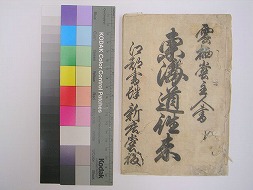 雲烟堂主人書
東海道往来
江都書肆 新庄堂板
KODAK Color Control Patches
Kodak